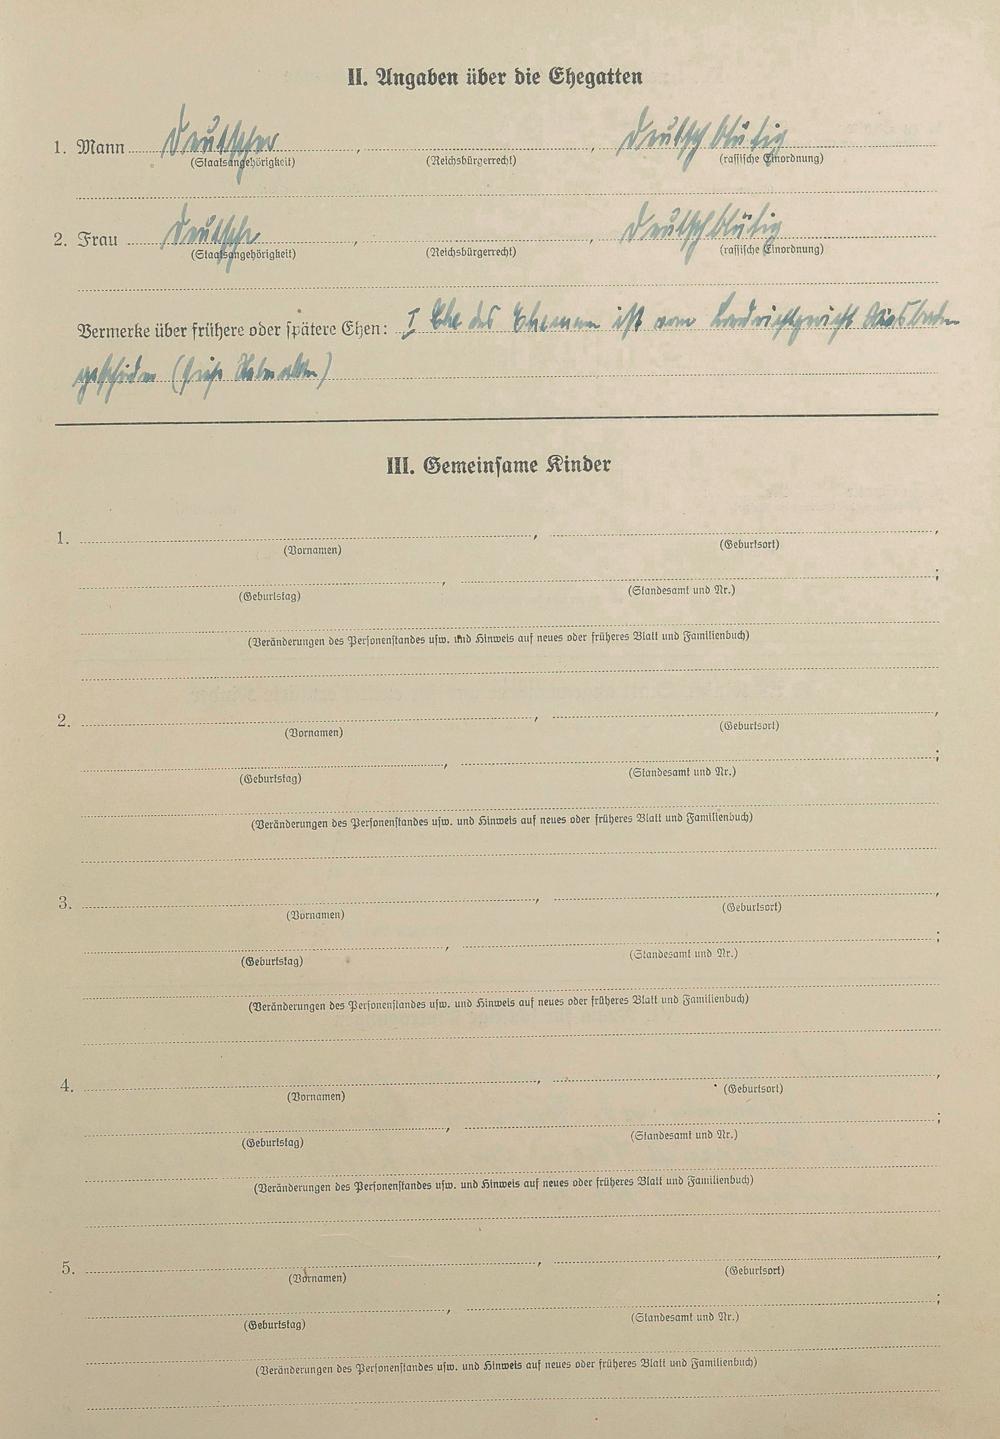 II. Angaben über die Ehegatten
1. Mann Deutscher , , deutschblütig
(Staatsangehörigkeit) (Reichsbürgerrecht) (rassische Einordnung)
2. Frau Deutsche , , deutschblütig
(Staatsangehörigkeit) (Reichsbürgerrecht) (rassische Einordnung)
Vermerke über frühere oder spätere Ehen: I Ehe des Ehemann ist vom
geschieden (siehe
III. Gemeinsame Kinder
1. , ,
(Vornamen) (Geburtsort)
, ;
(Geburtstag) (Standesamt und Nr.)
(Veränderungen des Personenstandes usw. und Hinweis auf neues oder früheres Blatt und Familienbuch)
2. , ,
(Vornamen) (Geburtsort)
, ;
(Geburtstag) (Standesamt und Nr.)
(Veränderungen des Personenstandes usw. und Hinweis auf neues oder früheres Blatt und Familienbuch)
3. , ,
(Vornamen) (Geburtsort)
, ;
(Geburtstag) (Standesamt und Nr.)
(Veränderungen des Personenstandes usw. und Hinweis auf neues oder früheres Blatt und Familienbuch)
4. , ,
(Vornamen) (Geburtsort)
, ;
(Geburtstag) (Standesamt und Nr.)
(Veränderungen des Personenstandes usw. und Hinweis auf neues oder früheres Blatt und Familienbuch)
5. , ,
(Vornamen) (Geburtsort)
, ;
(Geburtstag) (Standesamt und Nr.)
(Veränderungen des Personenstandes usw. und Hinweis auf neues oder früheres Blatt und Familienbuch)